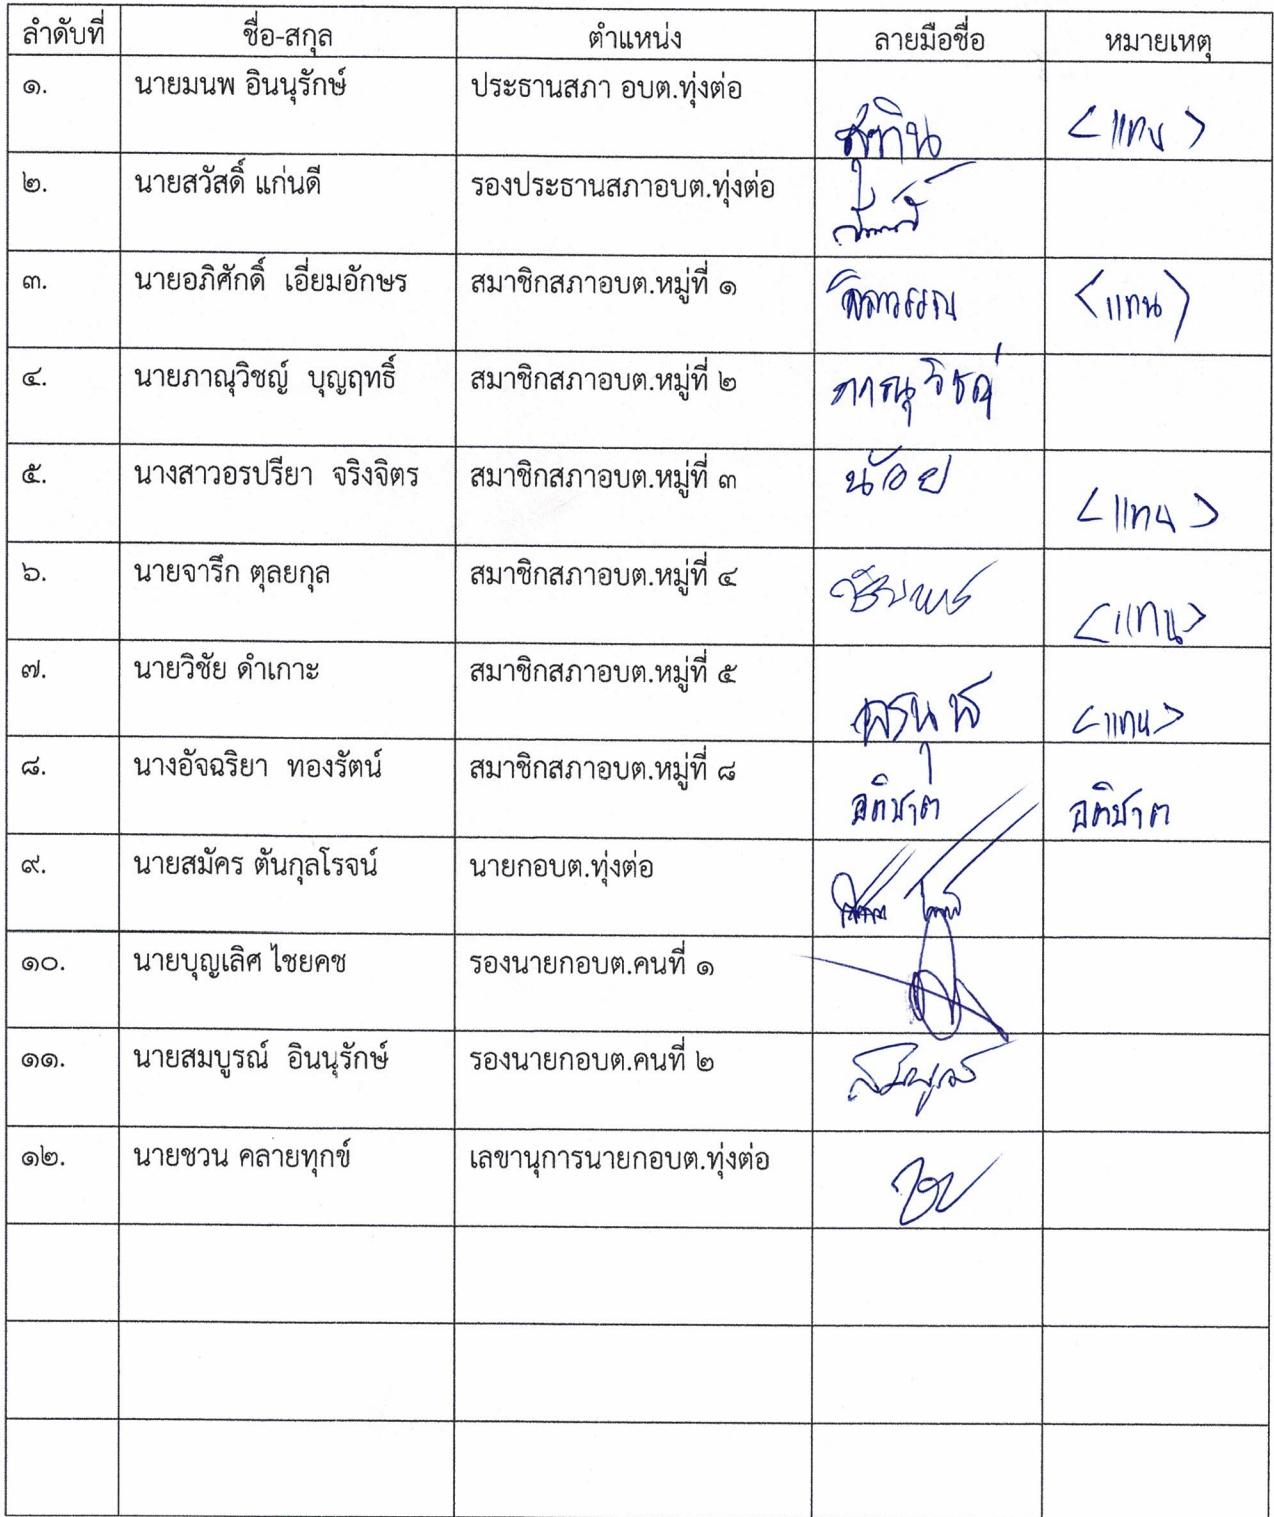 ลำดับที่ ชื่อ-สกุล ตำแหน่ง ลายมือชื่อ หมายเหตุ
๑. นายมนพ อินนุรักษ์ ประธานสภา อบต.ทุ่งต่อ
สุทิน <แทน>
๒. นายสวัสดิ์ แก่นดี รองประธานสภาอบต.ทุ่งต่อ
๓. นายอภิศักดิ์ เอี่ยมอักษร สมาชิกสภาอบต.หมู่ที่ ๑ <แทน>
๔. นายภาณุวิชญ์ บุญฤทธิ์ สมาชิกสภาอบต.หมู่ที่ ๒ ภาณุวิชญ์
๕. นางสาวอรปรียา จริงจิตร สมาชิกสภาอบต.หมู่ที่ ๓ น้อย
<แทน>
๖. นายจารึก ตุลยกุล สมาชิกสภาอบต.หมู่ที่ ๔
<แทน>
๗. นายวิชัย ดำเกาะ สมาชิกสภาอบต.หมู่ที่ ๕
<แทน>
๘. นางอัจฉริยา ทองรัตน์ สมาชิกสภาอบต.หมู่ที่ ๘
อภิชาต อภิชาต
๙. นายสมัคร ตันกุลโรจน์ นายกอบต.ทุ่งต่อ
๑๐. นายบุญเลิศ ไชยคช รองนายกอบต.คนที่ ๑
๑๑. นายสมบูรณ์ อินนุรักษ์ รองนายกอบต.คนที่ ๒
๑๒. นายชวน คลายทุกข์ เลขานุการนายกอบต.ทุ่งต่อ